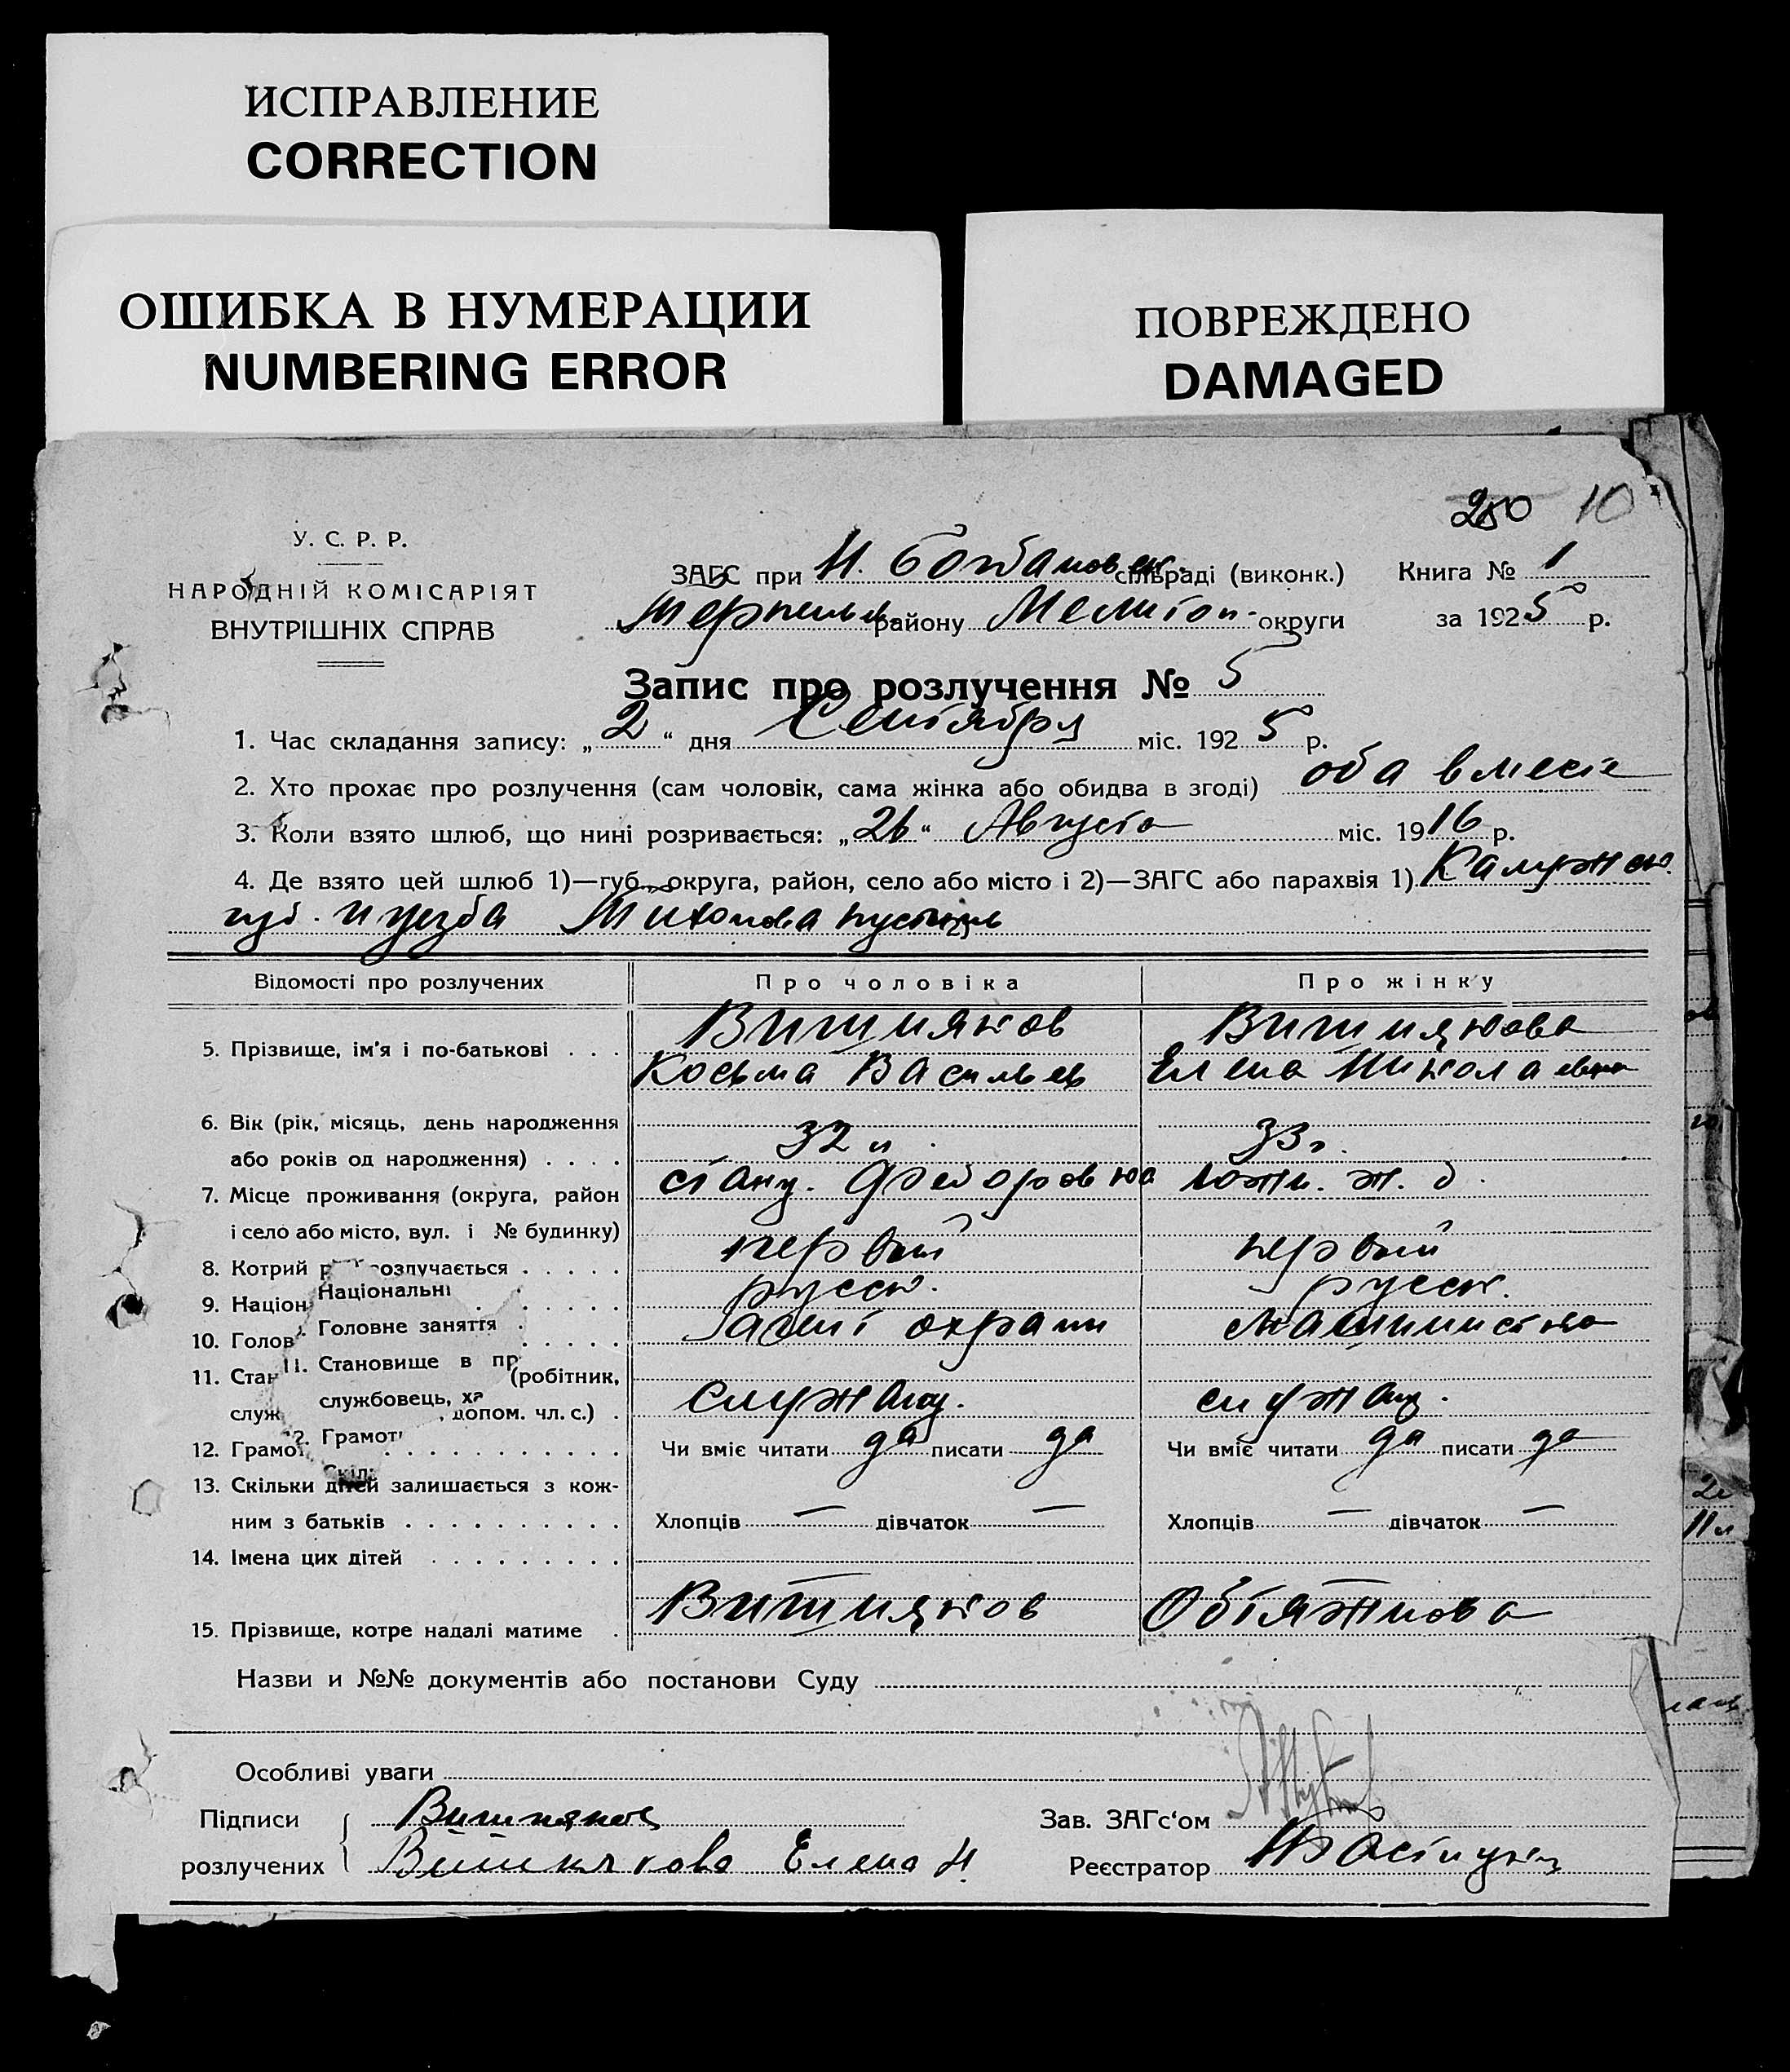 ИСПРАВЛЕНИЕ
CORRECTION
ОШИБКА В НУМЕРАЦИИ
NUMBERING ERROR
ПОВРЕЖДЕНО
DAMAGED
250 10
У. С. Р. Р.
НАРОДНІЙ КОМІСАРІЯТ
ВНУТРІШНІХ СПРАВ
ЗАГС при Н. Богдановск. сільраді (виконк.) Книга № 1
району Мелитоп. округи за 1925 р.
Запис про розлучення № 5
1. Час складання запису: „2“ дня Сентября міс. 1925 р.
2. Хто прохає про розлучення (сам чоловік, сама жінка або обидва в згоді) оба вместе
3. Коли взято шлюб, що нині розривається: „26“ Августа міс. 1916 р.
4. Де взято цей шлюб 1)—губ., округа, район, село або місто і 2)—ЗАГС або парахвія 1) Калужск.
губ. и уезда Тихонова пустынь 2)
Відомості про розлучених Про чоловіка Про жінку
5. Прізвище, ім'я і по-батькові . . . Вишняков Вишнякова
Косьма Васильев Елена Николаевна
6. Вік (рік, місяць, день народження
або років од народження) . . . . 32 л. 33 г.
7. Місце проживання (округа, район станц. Федоровка южн. ж. д.
і село або місто, вул. і № будинку)
8. Котрий р розлучається . . . . . первый первый
Національні
9. Націон . . . . . . русск. русск.
Головне заняття .
10. Голов . . . . . агент охраны машинистка
11. Становище в пр
11. Стан (робітник,
службовець, ха
служ , допом. чл. с.) . служащ. служащ.
2. Грамот
12. Грамот . . . . . . . . . . Чи вміє читати да писати да Чи вміє читати да писати да
Скіл
13. Скільки дітей залишається з кож-
ним з батьків . . . . . . . . . . Хлопців — дівчаток — Хлопців — дівчаток —
14. Імена цих дітей . . . . . . . . . — —
15. Прізвище, котре надалі матиме . Вишняков Обтяжнова
Назви и №№ документів або постанови Суду
Особливі уваги
Підписи Вишняков Зав. ЗАГс‘ом
розлучених Вишнякова Елена Н. Реєстратор